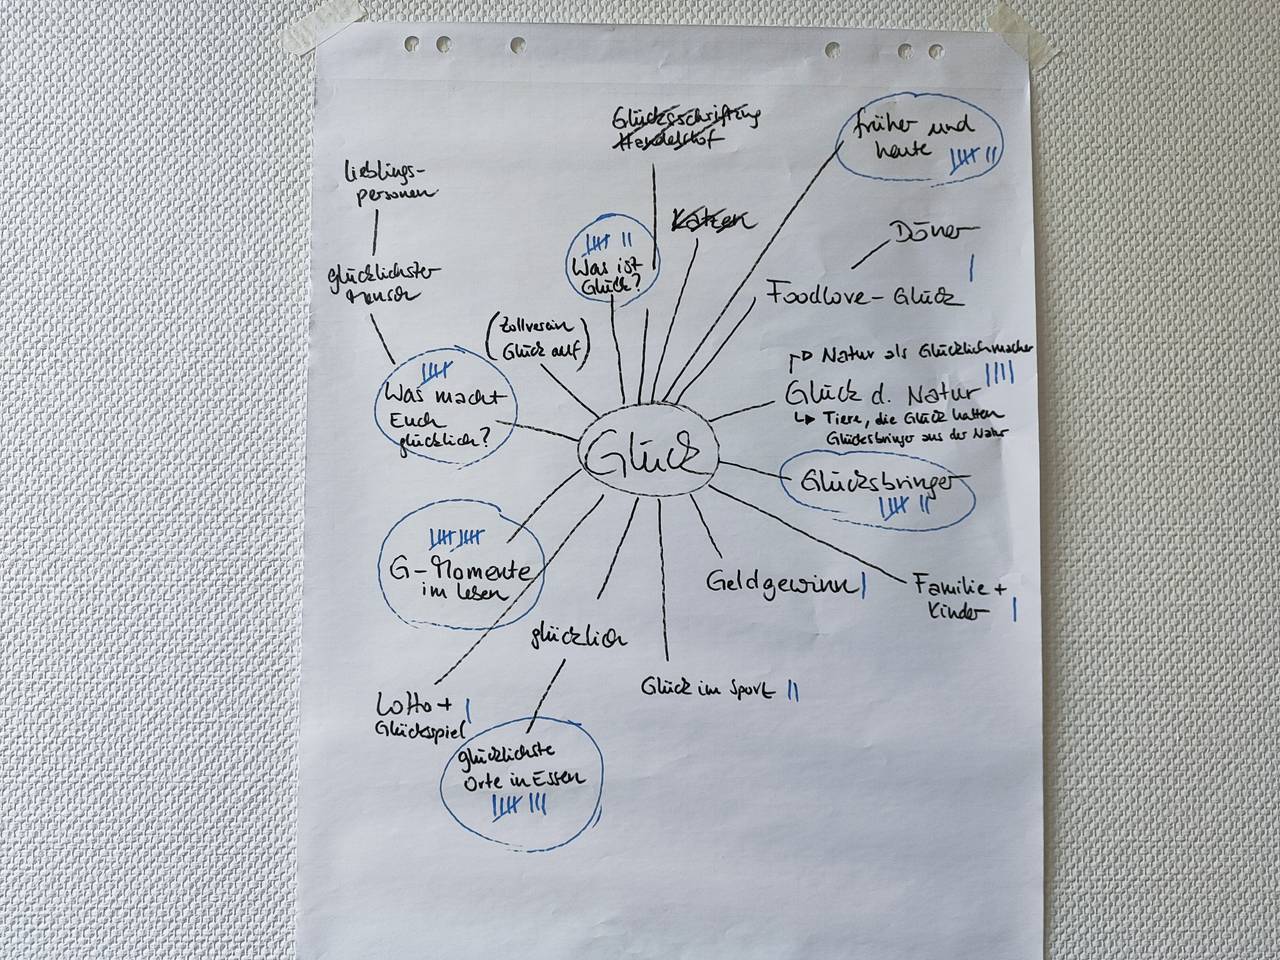 früher und
heute
Lieblings-
personen
Katzen
Döner
Was ist
Glück?
glücklichster
Mensch
Foodlove-Glück
(Zollverein
Glück auf)
Natur als Glücklichmacher
Glück d. Natur
Tiere, die Glück hatten
Glücksbringer aus der Natur
Was macht
Euch
glücklich?
Glück
Glücksbringer
G-Momente
im Leben
Geldgewinn
Familie +
Kinder
glücklich
Glück im Sport
Lotto +
Glücksspiel
glücklichste
Orte in Essen